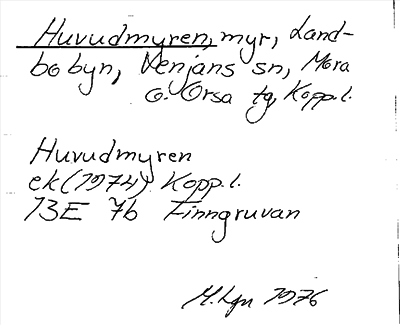 Huvudmyren, myr, Land-
bobyn, Venjans sn, Mora
o. Orsa tg, Kopp. l.
Huvudmyren
ek (1974) Kopp. l.
13E 7b Finngruvan
M. Lgn 1976